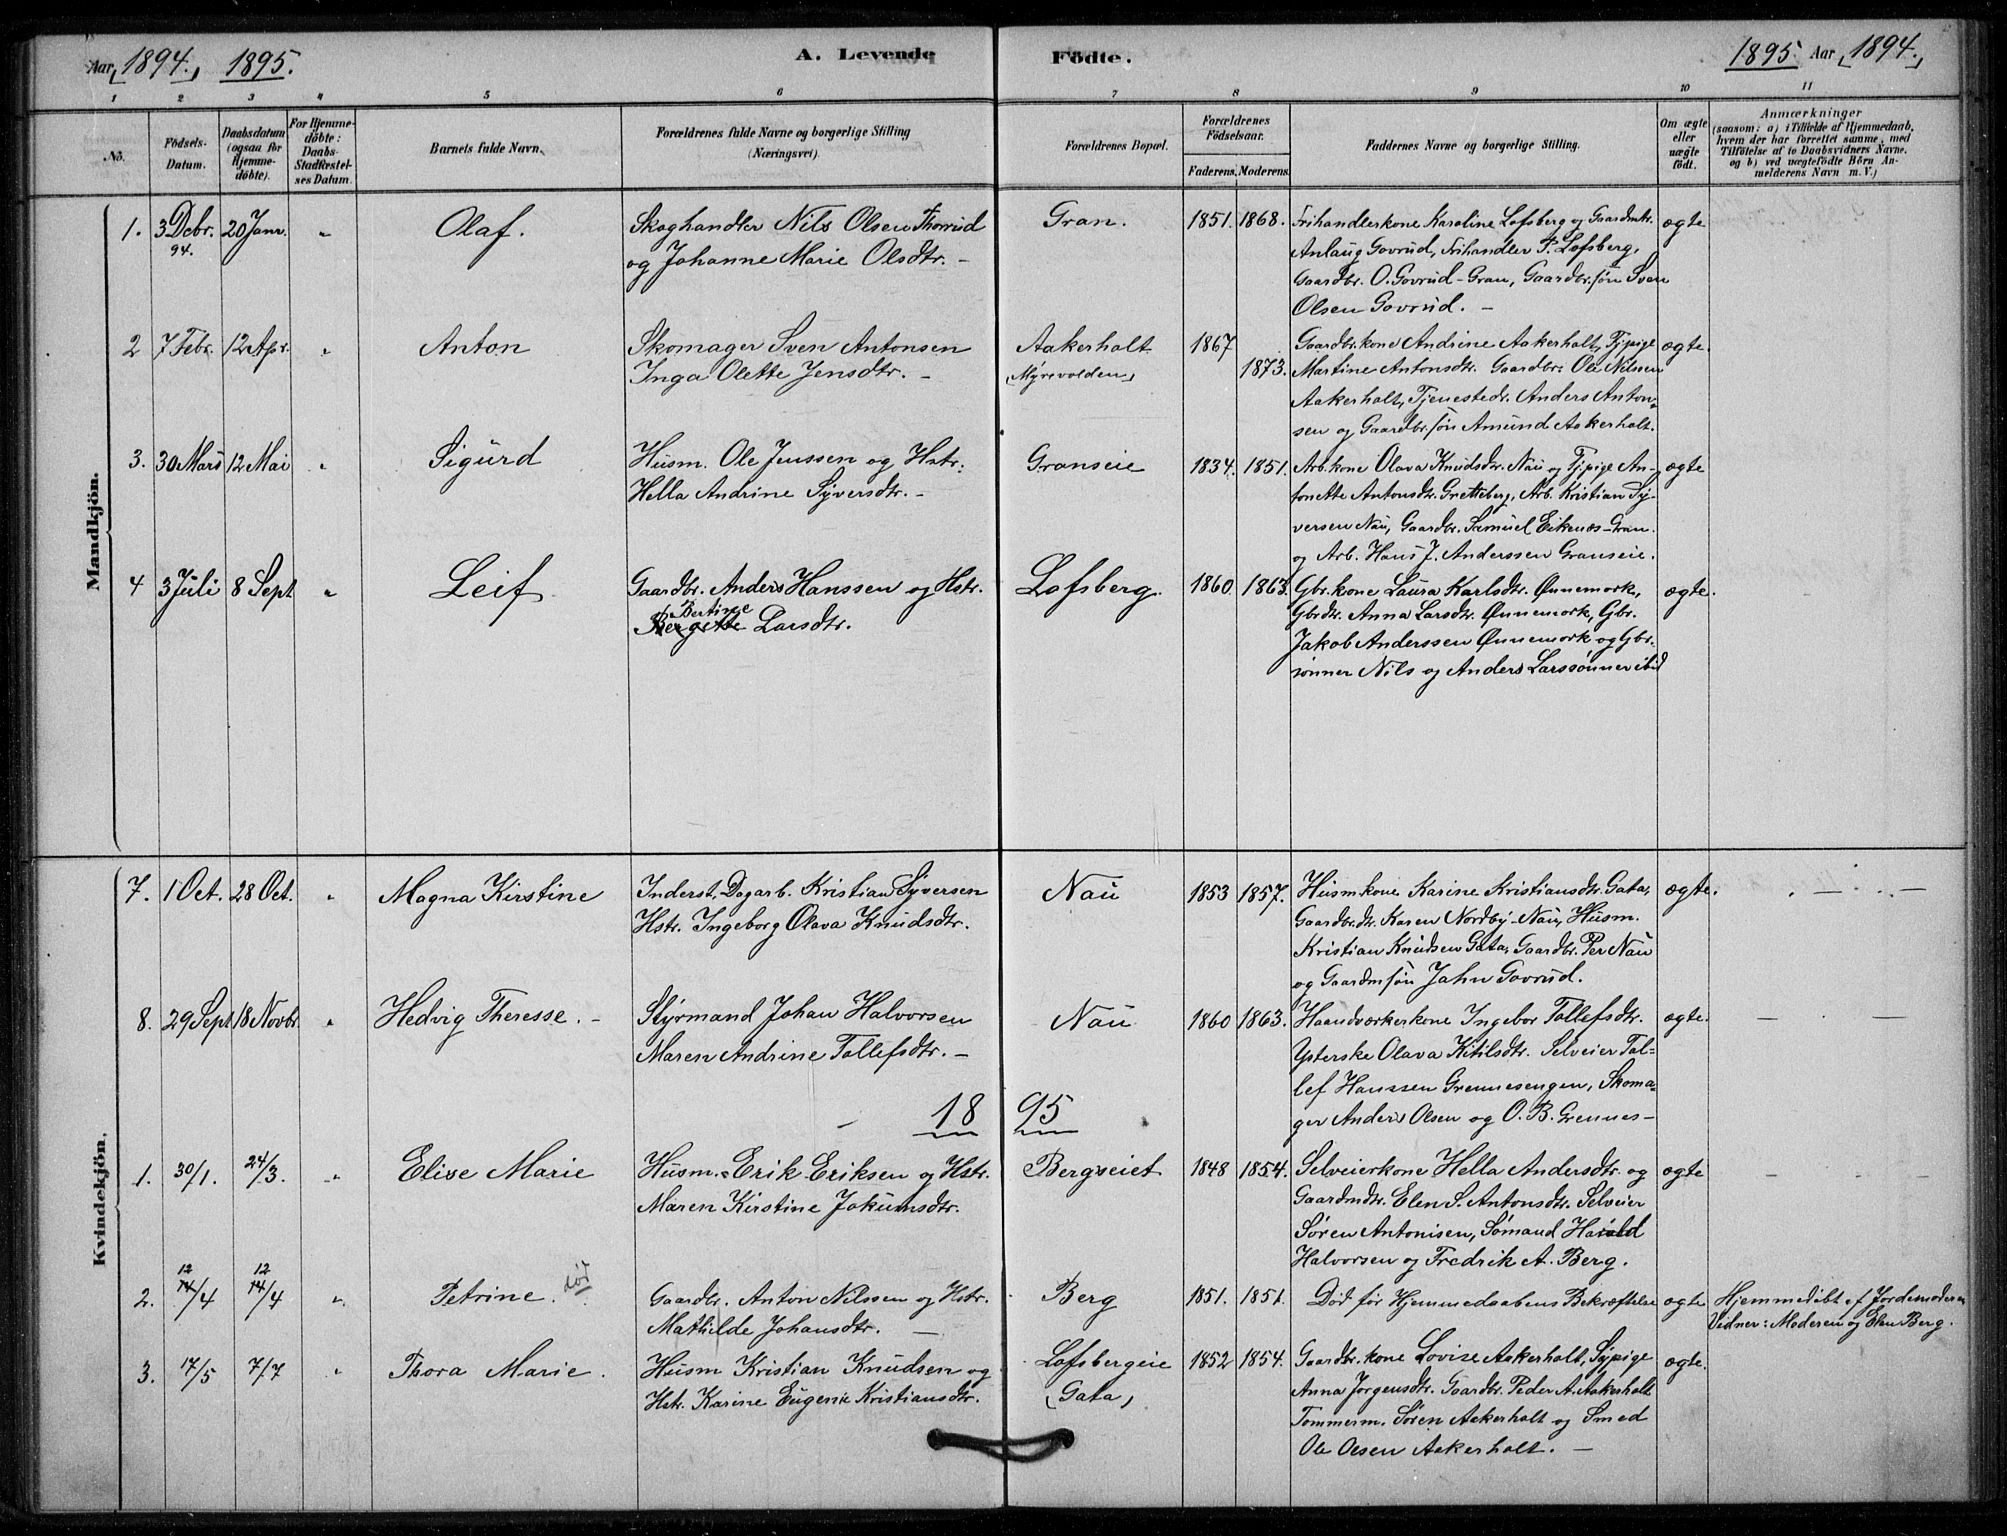 Aar 1894. 1895.
A. Levende Födte.
1895. Aar 1894.
1 2 3 4 5 6 7 8 9 10 11
No.
Födsels-Datum.
Daabsdatum (ogsaa for Hjemme-döbte).
For Hjemme-döbte: Daabs-Stadfæstel-ses Datum.
Barnets fulde Navn.
Forældrenes fulde Navne og borgerlige Stilling (Næringsvei).
Forældrenes Bopæl.
Forældrenes Födselsaar.
Faderens. Moderens.
Faddernes Navne og borgerlige Stilling.
Om ægte eller uægte födt.
Anmærkninger
(saasom: a) i Tilfælde af Hjemmedaab, hvem der har forrettet samme, med Tilföielse af to Daabsvidners Navne, og b) ved uægtefödte Börn An-melderens Navn m. V.)
Mandkjön.
1. 3 Dcbr. 94. 20 Janr. " Olaf. Skoghandler Nils Olsen Thorrud
og Johanne Marie Olsdtr. –
Gran. 1851. 1868. Frihandlerkone Karoline Lofsberg og Gaardmdtr. ægte
Anlaug Govrud, Frihandler P. Lofsberg,
Gaardbr. O. Govrud - Gran, Gaardbr.søn Sven
Olsen Govrud. –
2 7 Febr. 12 Apr. " Anton Skomager Sven Antonsen
Inga Olette Jensdtr. –
Aakerholt (Myrvolden) 1867 1873. Gaardbr.kone Andrine Aakerholt, Tjpige ægte.
Martine Antonsdtr. Gaardbr. Ole Nilssen
Aakerholt, Tjenestedr. Anders Anton-
sen og Gaardbr.søn Amund Aakerholt.
3. 30 Mars 12 Mai " Sigurd Husm. Ole Jenssen og Hstr.
Hella Andrine Syversdtr. –
Granseie 1834. 1851. Arb.kone Olava Knudsdtr. Nau og Tjpige An- ægte
tonette Antonsdtr. Gretteberg, Arb. Kristian Sy-
versen Nau, Gaardbr. Samuel Eikenæs-Gran.
og Arb. Hans J. Anderssen Granseie.
4 3 Juli 8 Sept " Leif Gaardbr. Anders Hanssen og Hstr.
Bertine
Bergette Larsdtr.
Lofsberg. 1860. 1863. Gbr.kone Laura Karlsdtr. Ønnemork, ægte.
Gbrdtr. Anna Larsdtr. Ønnemork, Gbr.
Jakob Anderssen Ønnemork og Gbr.
sønner Nils og Anders Larssønner ibid
Kvindekjön.
7. 1 Oct. 28 Oct. " Magna Kirstine Inderst, Dagarb. Kristian Syversen
Hstr. Ingeborg Olava Knudsdtr.
Nau 1853 1857. Husmkone Karine Kristiansdtr. Gata, ægte.
Gaardbr.dtr. Karen Nordby-Nau, Husm.
Kristian Knudsen Gata, Gaardbr. Per Nau
og Gaardmsøn Jahn Govrud.
8. 29 Sept 18 Novbr. " Hedvig Theresse. – Styrmand Johan Halvorsen
Maren Andrine Tollefsdtr. –
Nau 1860 1863. Haandværkerkone Ingebor Tollefsdtr. ægte.
Ysterske Olava Kitilsdtr. Selveier Tol-
lef Hanssen Grennesengen, Skoma-
ger Anders Olsen og O. B. Grennes –
18 95
1. 30/1. 24/3. " Elise Marie Husm. Erik Eriksen og Hstr.
Maren Kirstine Jokumsdtr.
Bergseiet 1848 1854. Selveierkone Hella Andersdtr. og ægte
Gaardmdtr. Elen S. Antonsdtr. Selveier
Søren Antonisen, Sømand Harald
Halvorsen og Fredrik A. Berg.
12 12
2. 14/4 14/4 " Petrine. død Gaardbr. Anton Nilssen og Hstr.
Mathilde Johansdtr. –
Berg 1851. 1851. Død før Hjemmedaabens Bekræftelse ægte Hjemmedøbt af Jordemoderen
Vidner: Moderen og Berg.
3. 17/5 7/7 " Thora Marie. Husm Kristian Knudsen og
Hstr. Karine Eugenie Kristiansdtr.
Lofsbergeie (Gata) 1852 1854. Gaardbr.kone Lovise Aakerholt, Sypige ægte.
Anna Jorgensdtr. Gaardbr. Peder A. Aakerholt
Tommerm. Søren Aakerholt og Smed
Ole Olsen Aakerholt. –